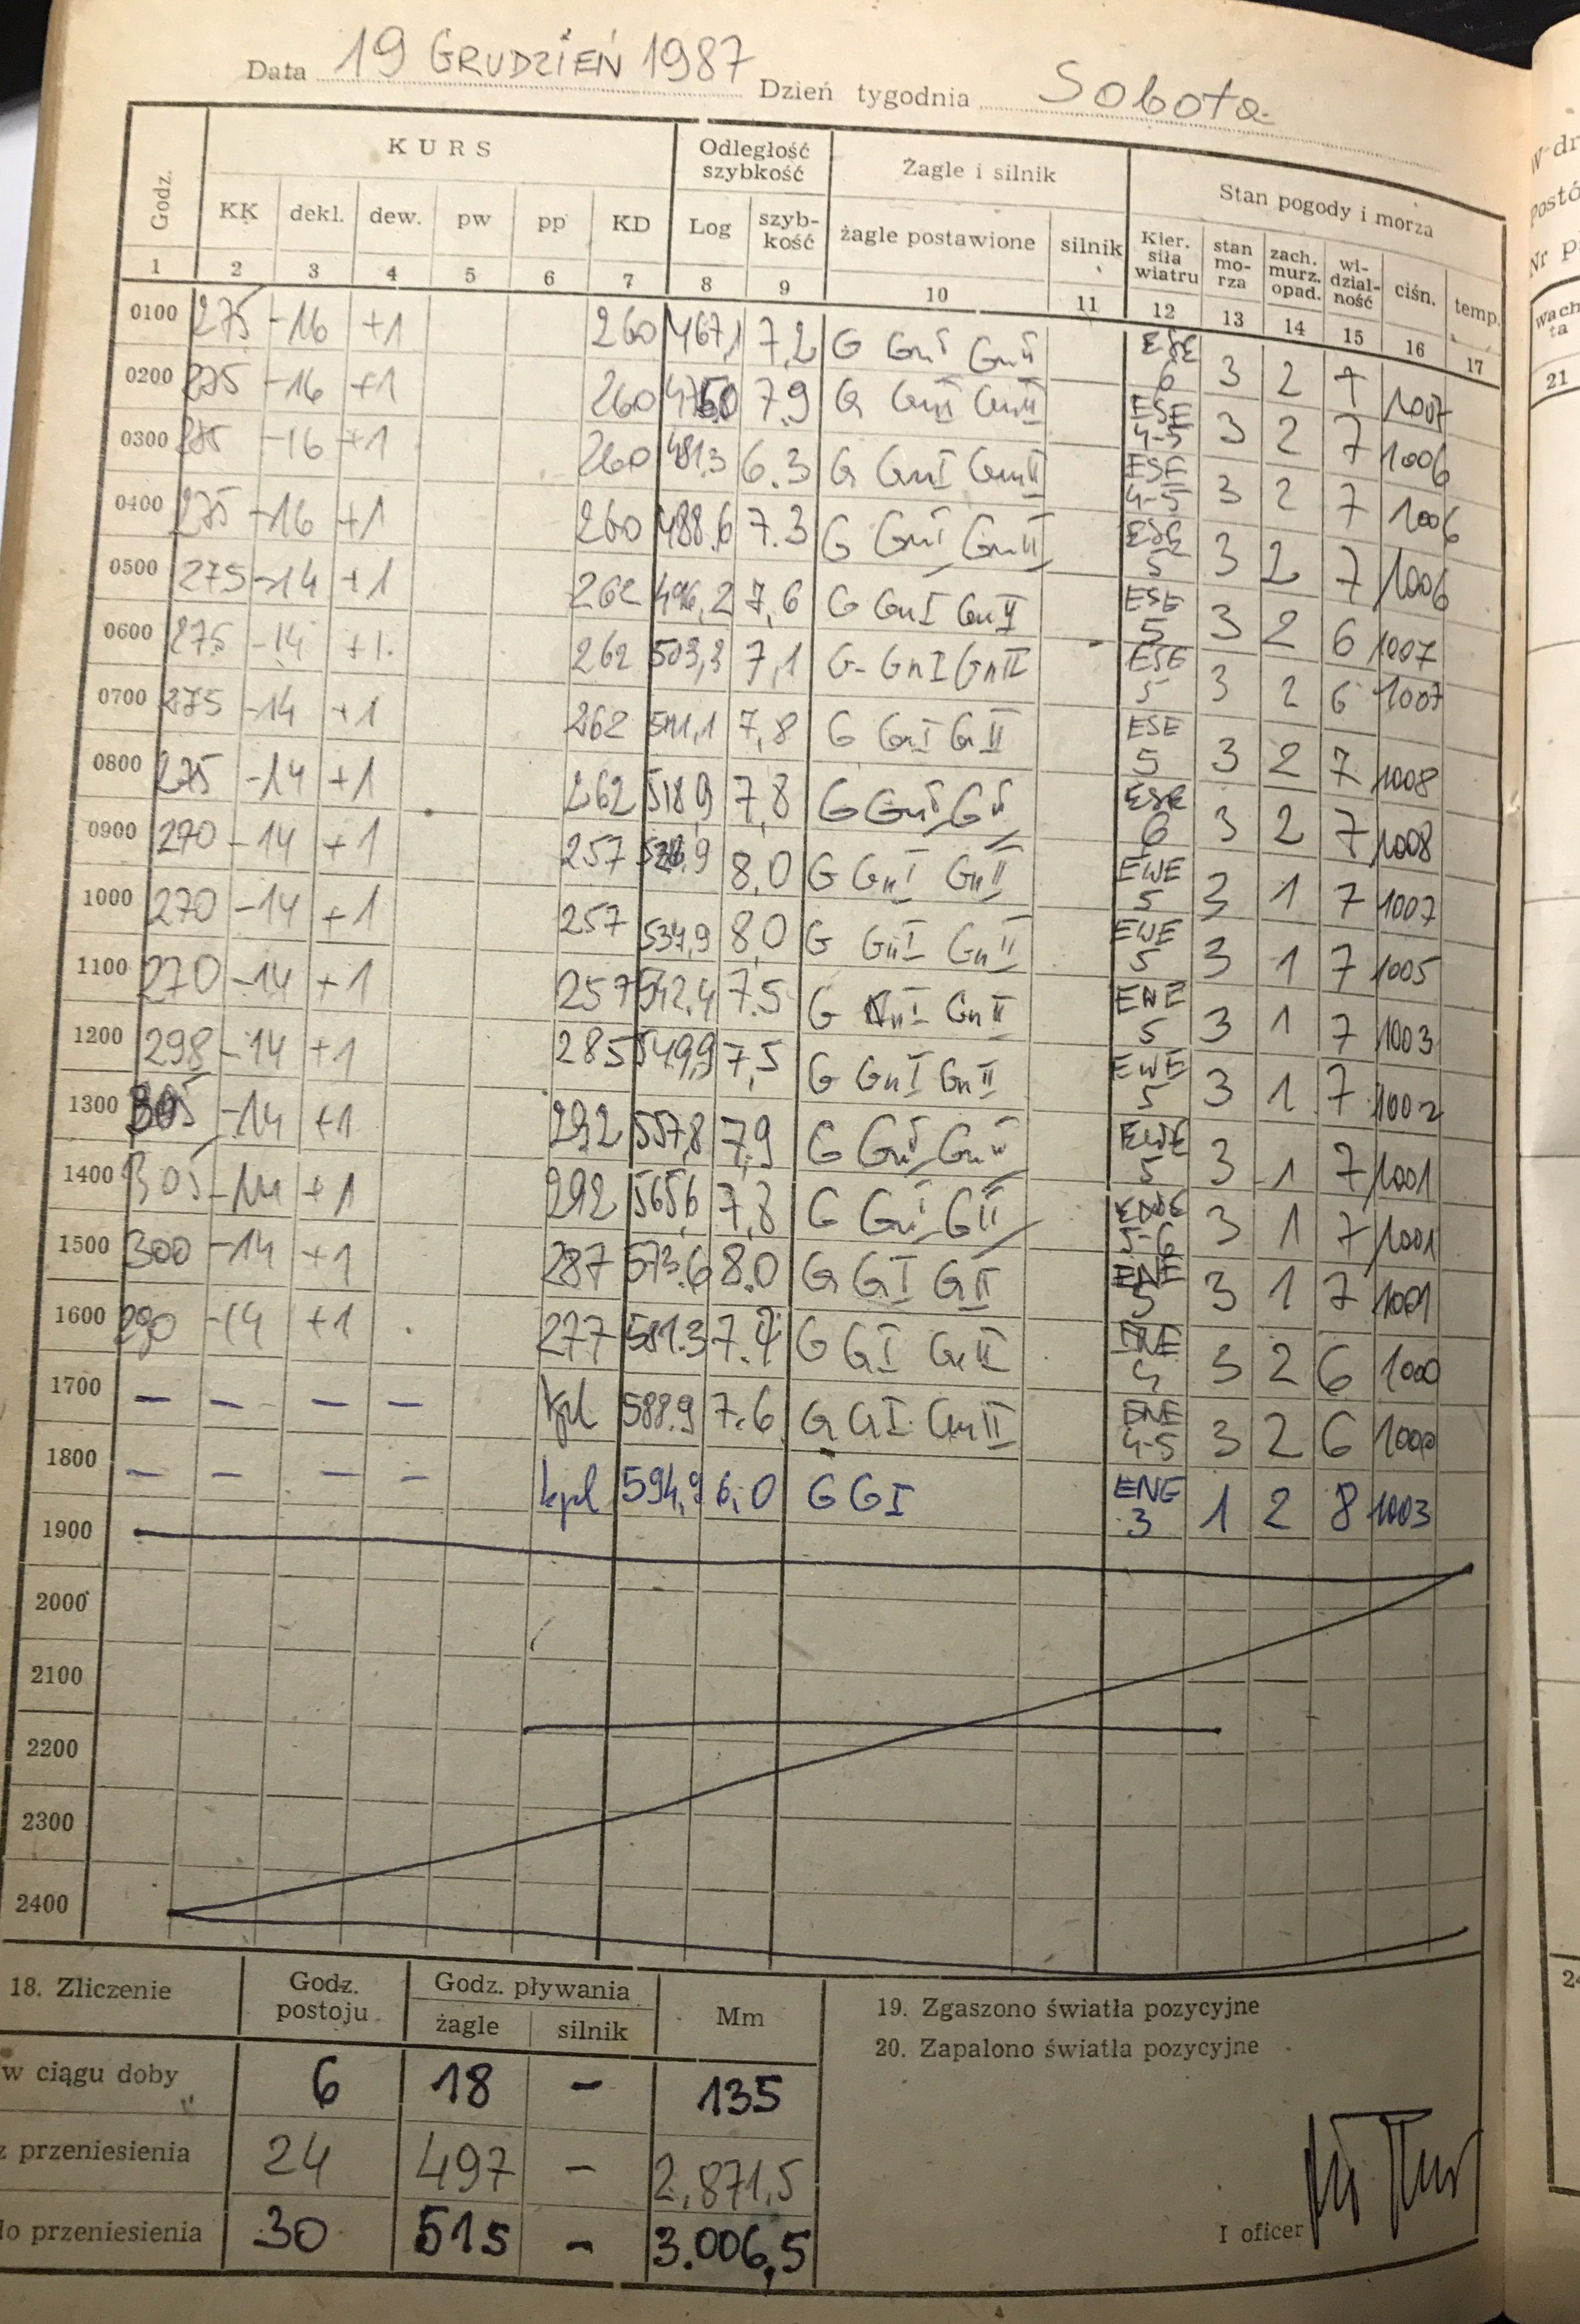 Data 19 GRUDZIEŃ 1987 Dzień tygodnia Sobota
Godz. KURS Odległość szybkość Żagle i silnik Stan pogody i morza
KK dekl. dew. pw pp KD Log szyb-kość żagle postawione silnik Kier. siła wiatru stan mo-rza zach. murz. opad. wi-dzial-ność ciśn. temp.
1 2 3 4 5 6 7 8 9 10 11 12 13 14 15 16 17
0100 275 -16 +1 260 467,1 7,2 G GnI GnII ESE 6 3 2 7 1007
0200 275 -16 +1 260 7.9 G GnI GnII ESE 4-5 3 2 7 1006
0300 -16 +1 260 481.3 6.3 G GnI GnII ESE 4-5 3 2 7 1006
0400 275 -16 +1 260 488.6 7.3 G GnI GnII ESE 5 3 2 7 1006
0500 275 -14 +1 262 496,2 7,6 G GnI GnII ESE 5 3 2 6 1007
0600 275 -14 +1. 262 503,3 7,1 G- GnI GnII ESE 5 3 2 6 1007
0700 275 -14 +1 262 511,1 7,8 G GnI GII ESE 5 3 2 7 1008
0800 275 -14 +1 262 518,9 7,8 G GnI GII ESE 6 3 2 7 1008
0900 270 -14 +1 257 8,0 G GnI GnII EWE 5 3 1 7 1007
1000 270 -14 +1 257 534,9 8,0 G GnI GnII EWE 5 3 1 7 1005
1100 270 -14 +1 257 542,4 7.5 G GnI GnII ENE 5 3 1 7 1003
1200 298 -14 +1 285 549,9 7,5 G GnI GnII EWE 5 3 1 7 1002
1300 305 -14 +1 292 557,8 7,9 G GnI GnII 5 3 1 7 1001
1400 305 -14 +1 292 565,6 7,8 G GnI GII 5-6 3 1 7 1001
1500 300 -14 +1 287 573.6 8.0 G GI GII ENE 5 3 1 7 1001
1600 290 -14 +1 277 581.3 G GI GnII ENE 5 3 2 6 1000
1700 – – – – kpl 588.9 7.6 G GI GnII ENE 4-5 3 2 6 1000
1800 – – – – kpl 594,9 6,0 G GI ENE 3 1 2 8 1003
1900
2000
2100
2200
2300
2400
18. Zliczenie Godz. postoju Godz. pływania Mm
żagle silnik
w ciągu doby 6 18 - 135
z przeniesienia 24 497 - 2.871,5
do przeniesienia 30 515 - 3.006,5
19. Zgaszono światła pozycyjne
20. Zapalono światła pozycyjne
I oficer
Nr
21